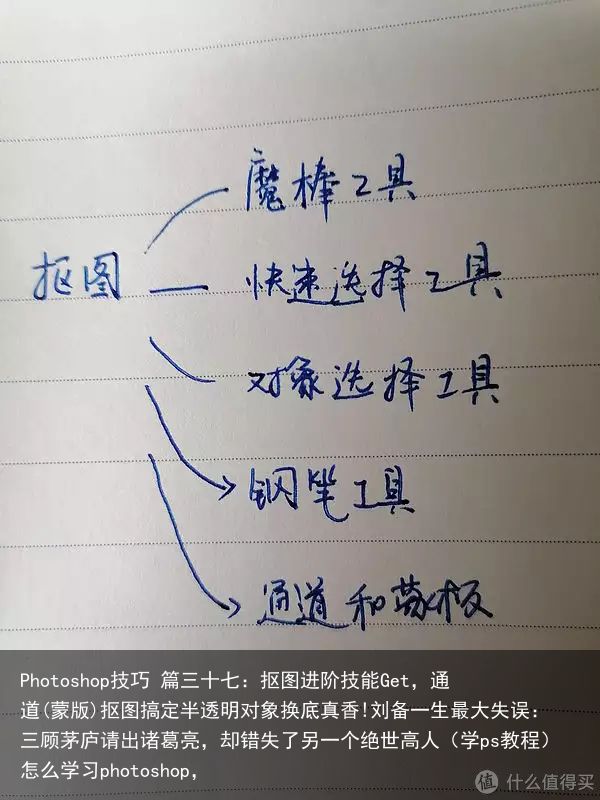 魔棒工具
抠图
快速选择工具
对象选择工具
钢笔工具
通道和蒙板
Photoshop技巧 篇三十七：抠图进阶技能Get，通
道(蒙版)抠图搞定半透明对象换底真香!刘备一生最大失误：
三顾茅庐请出诸葛亮，却错失了另一个绝世高人（学ps教程）
怎么学习photoshop，
值 什么值得买